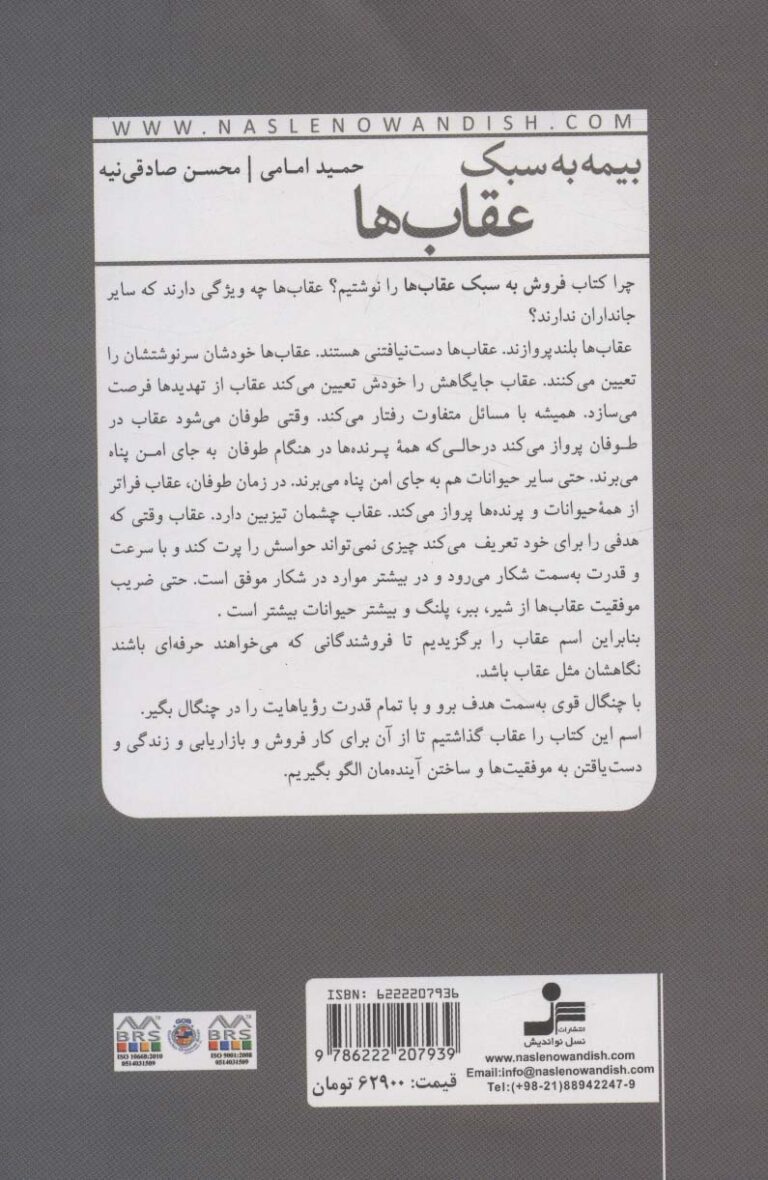 WWW.NASLENOWANDISH.COM
بیمه به سبک
عقاب‌ها
حمید امامی | محسن صادقی‌نیه
چرا کتاب فروش به سبک عقاب‌ها را نوشتیم؟ عقاب‌ها چه ویژگی دارند که سایر
جانداران ندارند؟
عقاب‌ها بلندپروازند. عقاب‌ها دست‌نیافتنی هستند. عقاب‌ها خودشان سرنوشتشان را
تعیین می‌کنند. عقاب جایگاهش را خودش تعیین می‌کند عقاب از تهدیدها فرصت
می‌سازد. همیشه با مسائل متفاوت رفتار می‌کند. وقتی طوفان می‌شود عقاب در
طوفان پرواز می‌کند درحالی‌که همهٔ پرنده‌ها در هنگام طوفان به جای امن پناه
می‌برند. حتی سایر حیوانات هم به جای امن پناه می‌برند. در زمان طوفان، عقاب فراتر
از همهٔ حیوانات و پرنده‌ها پرواز می‌کند. عقاب چشمان تیزبین دارد. عقاب وقتی که
هدفی را برای خود تعریف می‌کند چیزی نمی‌تواند حواسش را پرت کند و با سرعت
و قدرت به‌سمت شکار می‌رود و در بیشتر موارد در شکار موفق است. حتی ضریب
موفقیت عقاب‌ها از شیر، ببر، پلنگ و بیشتر حیوانات بیشتر است .
بنابراین اسم عقاب را برگزیدیم تا فروشندگانی که می‌خواهند حرفه‌ای باشند
نگاهشان مثل عقاب باشد.
با چنگال قوی به‌سمت هدف برو و با تمام قدرت رؤیاهایت را در چنگال بگیر.
اسم این کتاب را عقاب گذاشتیم تا از آن برای کار فروش و بازاریابی و زندگی و
دست‌یاقتن به موفقیت‌ها و ساختن آینده‌مان الگو بگیریم.
BRS
ISO 10668:2010
0514031509
BRS
ISO 9001:2008
0514031509
ISBN: 6222207936
9 786222 207939
قیمت: ۶۲۹۰۰ تومان
انتشارات
نسل نواندیش
www.naslenowandish.com
Email:info@naslenowandish.com
Tel:(+98-21)88942247-9